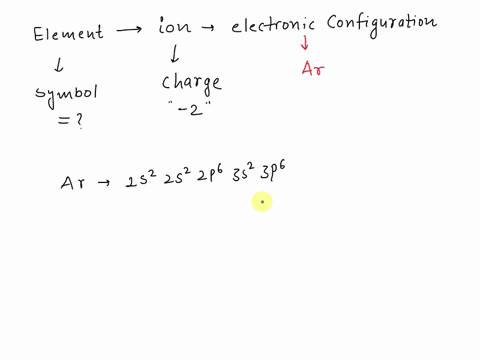 Element → ion → electronic Configuration
↓ ↓ ↓
symbol Charge Ar
= ? "-2"
Ar → 1s² 2s² 2p⁶ 3s² 3p⁶